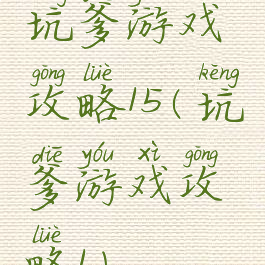 坑爹游戏
gōng lüè kēng
攻略15(坑
diē yóu xì gōng
爹游戏攻
lüè